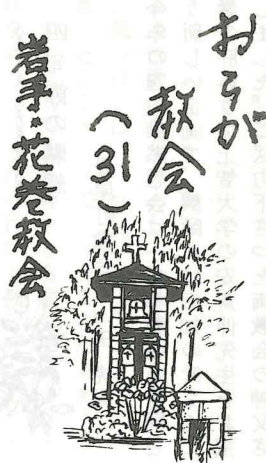 おらが
教会
（31）
岩手・花巻教会